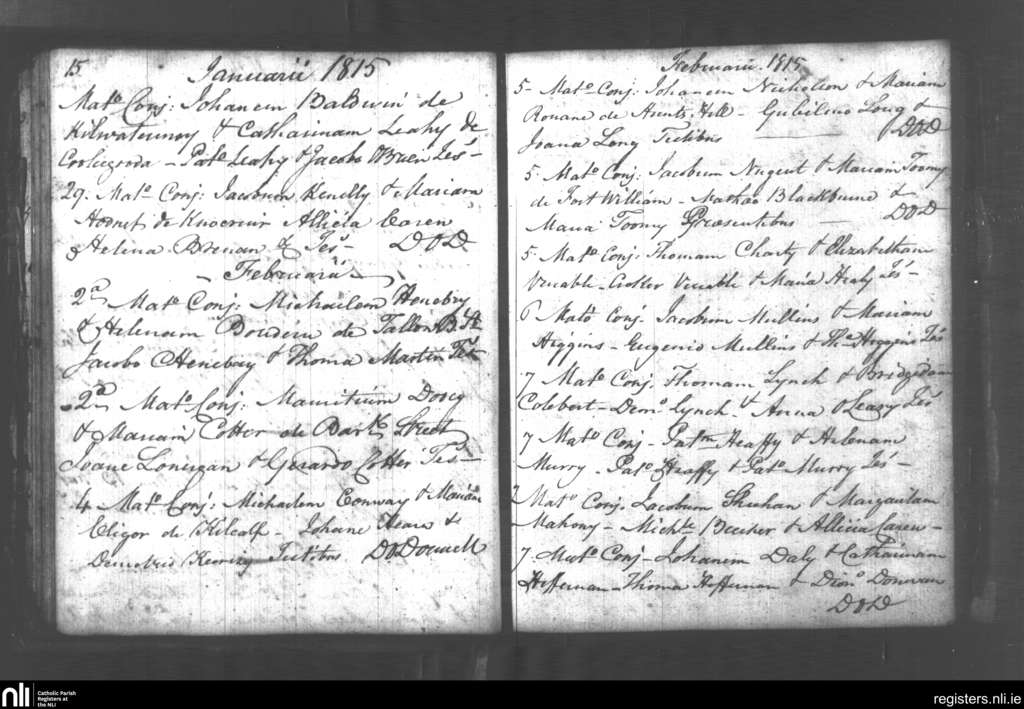 15 Januarii 1815
Mato. Conj: Johanem Baldwin de
Kilwatermoy & Catharinam Leahy de
Patk. Leahy & Jacobo OBrien Tes-
29. Mato- Conj: Jacobum Kenelly & Mariam
Hodnet de Allicia Caren
& Helina Brenan Tes- DOD
Februarii
2d Mato. Conj: Michaelem Henebry
& Helenam de Tallow B. St.
Jacobo Henebry & Thoma Martin Tes
2d Mato. Conj: Mauritium
& Mariam Cotter de Bark Street
Joane Lonergan & Gerardo Cotter Tes-
4 Mato. Conj: Michaelem Conway & Mariam
de Kilcalf- Johane &
Demetrio Testibus DODonnell
Februarii 1815
5- Mato. Conj: Johanem Nicholson & Mariam
Ronane de Hill- Gulielmo Long &
Joana Long Testibus DOD
5 Mato. Conj: Jacobum Nugent & Mariam Toomy
de Fort William- Blackburne &
Maria Toomy Præsentibus DOD
5- Mato. Conj: Thomam & Elizabetham
Venable- Venable & Maria Healy Tes-
6 Mato Conj: Jacobum Mullins & Mariam
Higgins- Eugenio Mullins & Tho. Higgins Tes
7 Mato. Conj: Thomam Lynch & Bridgidam
Colebert- Demo. Lynch & Anna OLeary Tes
7 Mato. Conj- Patm. Heaffy & Helenam
Murry. Pato. Heaffy & Pato. Murry Tes-
7 Mato. Conj: Jacobum & Margaritam
Mahony- Michle. & Allicia Caren-
7- Mato. Conj- Johanem Daly & Catharinam
Heffernan- Thoma Heffernan & Dono. Donovan
DOD
nli
Catholic Parish
Registers at
the NLI
registers.nli.ie